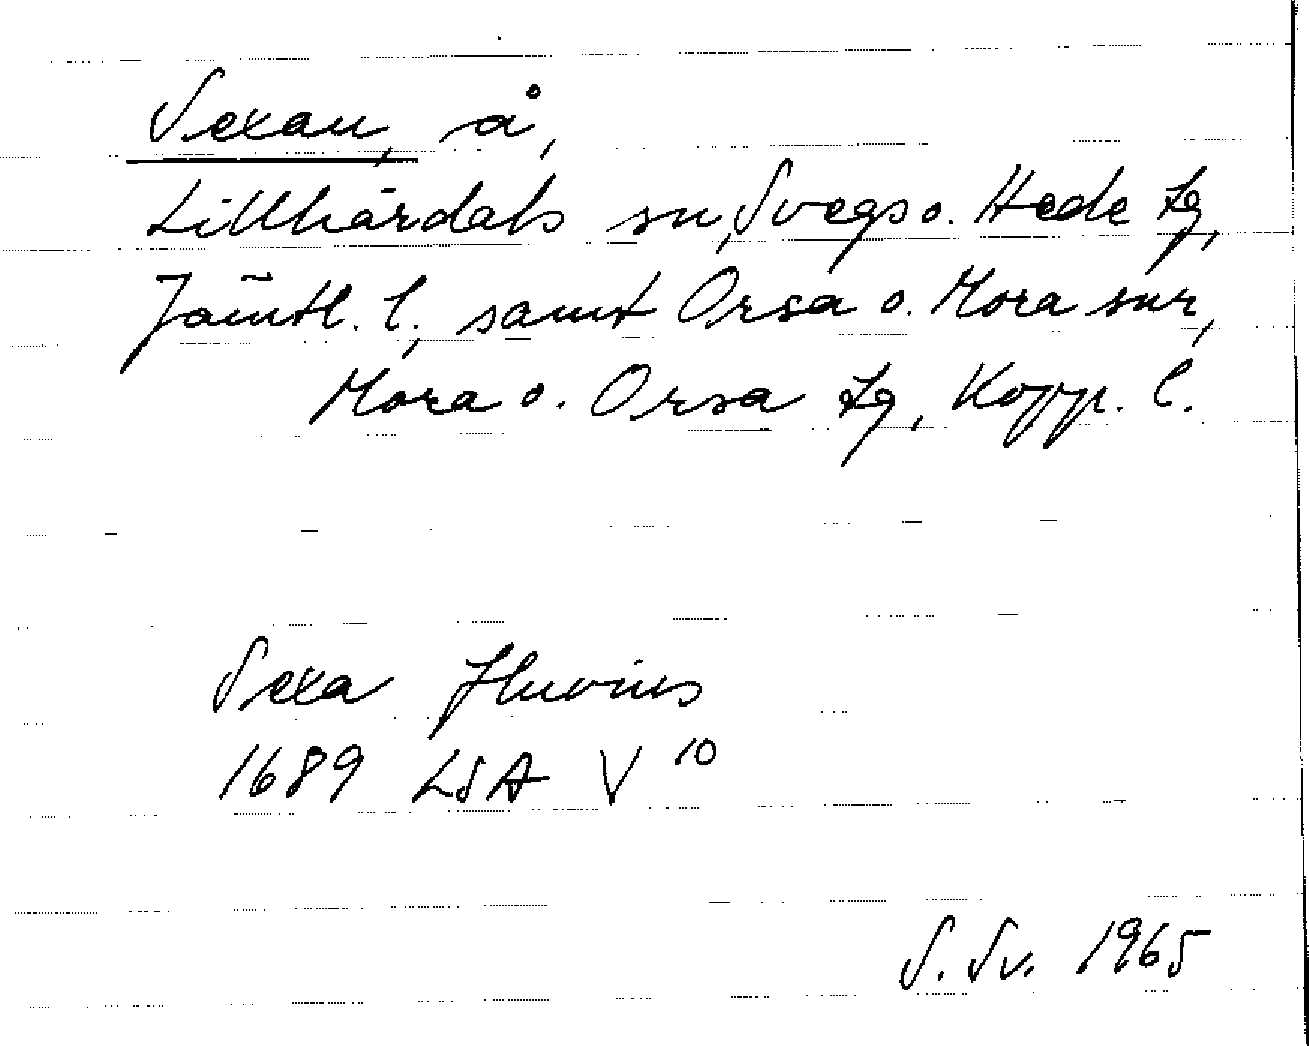 Sexan, å,
Lillhärdals sn, Svegs o. Hede tg,
Jämtl. l., samt Orsa o. Mora snr,
Mora o. Orsa tg, Kopp. l.
Sexa fluvius
1689 LSA V 10
S. Sv. 1965